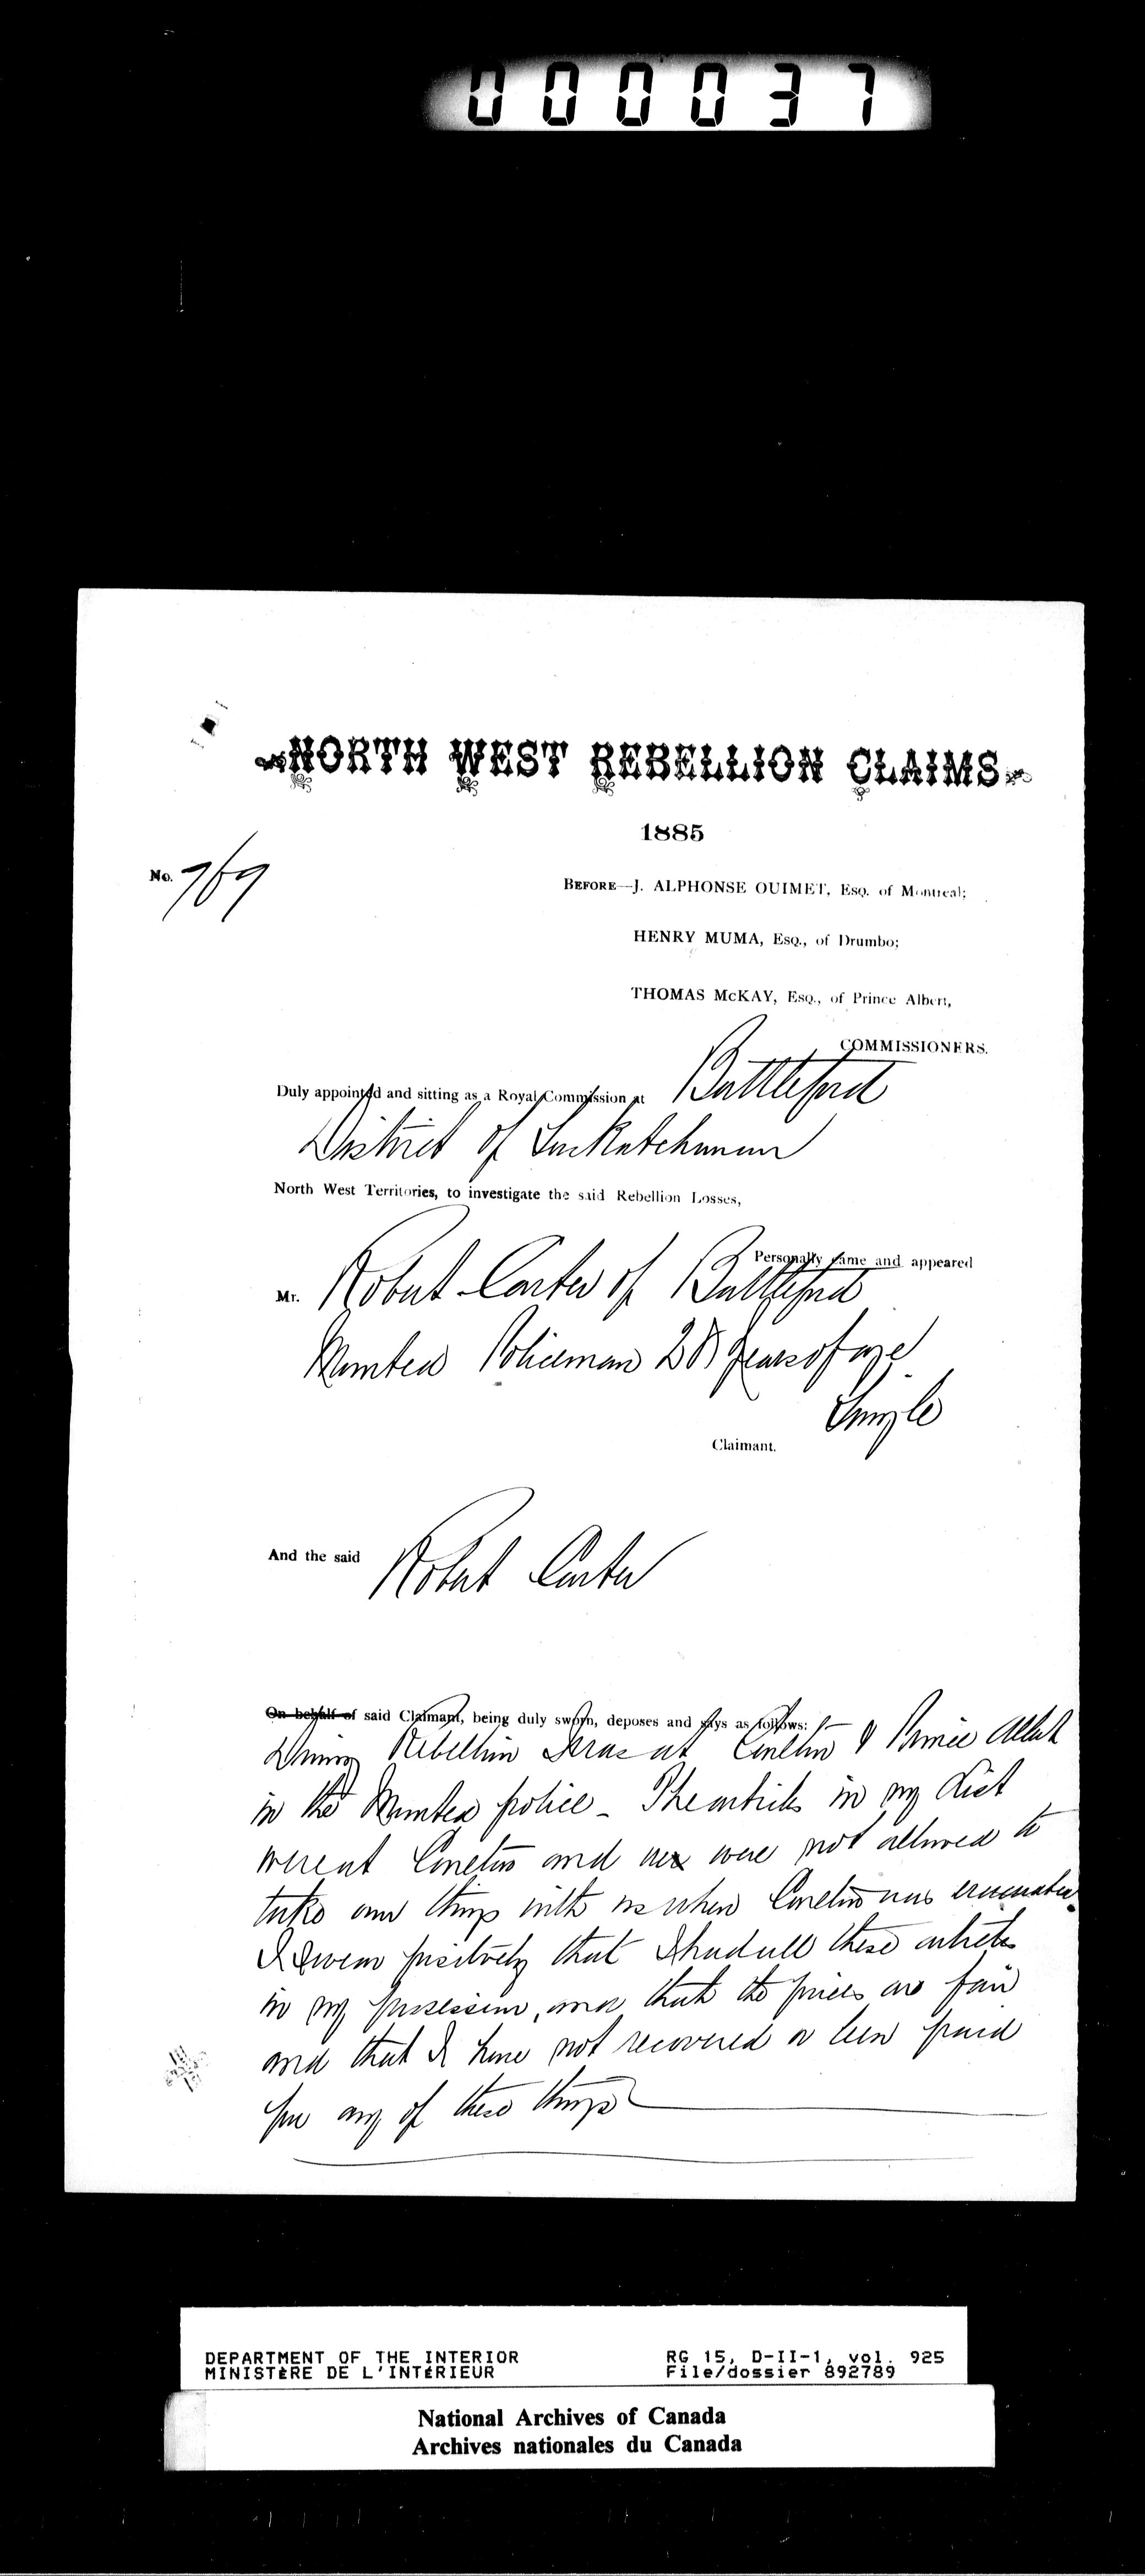 000037
NORTH WEST REBELLION CLAIMS
1885
No. 769
BEFORE—J. ALPHONSE OUIMET, Esq. of Montreal;
HENRY MUMA, Esq., of Drumbo;
THOMAS McKAY, Esq., of Prince Albert,
COMMISSIONERS.
Duly appointed and sitting as a Royal Commission at Battleford
District of Saskatchewan
North West Territories, to investigate the said Rebellion Losses,
Personally came and appeared
Mr. Robert Carter of Battleford
Mounted Policeman 28 years of age
Single
Claimant.
And the said Robert Carter
On behalf of said Claimant, being duly sworn, deposes and says as follows:
During Rebellion I was at Carlton & Prince Albert
in the Mounted police - The articles in my list
were at Carlton and we were not allowed to
take our things with us when Carlton was evacuated.
I swear positively that I had all these articles
in my possession, and that the prices are fair
and that I have not recovered or been paid
for any of these things
DEPARTMENT OF THE INTERIOR RG 15, D-II-1, vol. 925
MINISTÈRE DE L'INTÉRIEUR File/dossier 892789
National Archives of Canada
Archives nationales du Canada